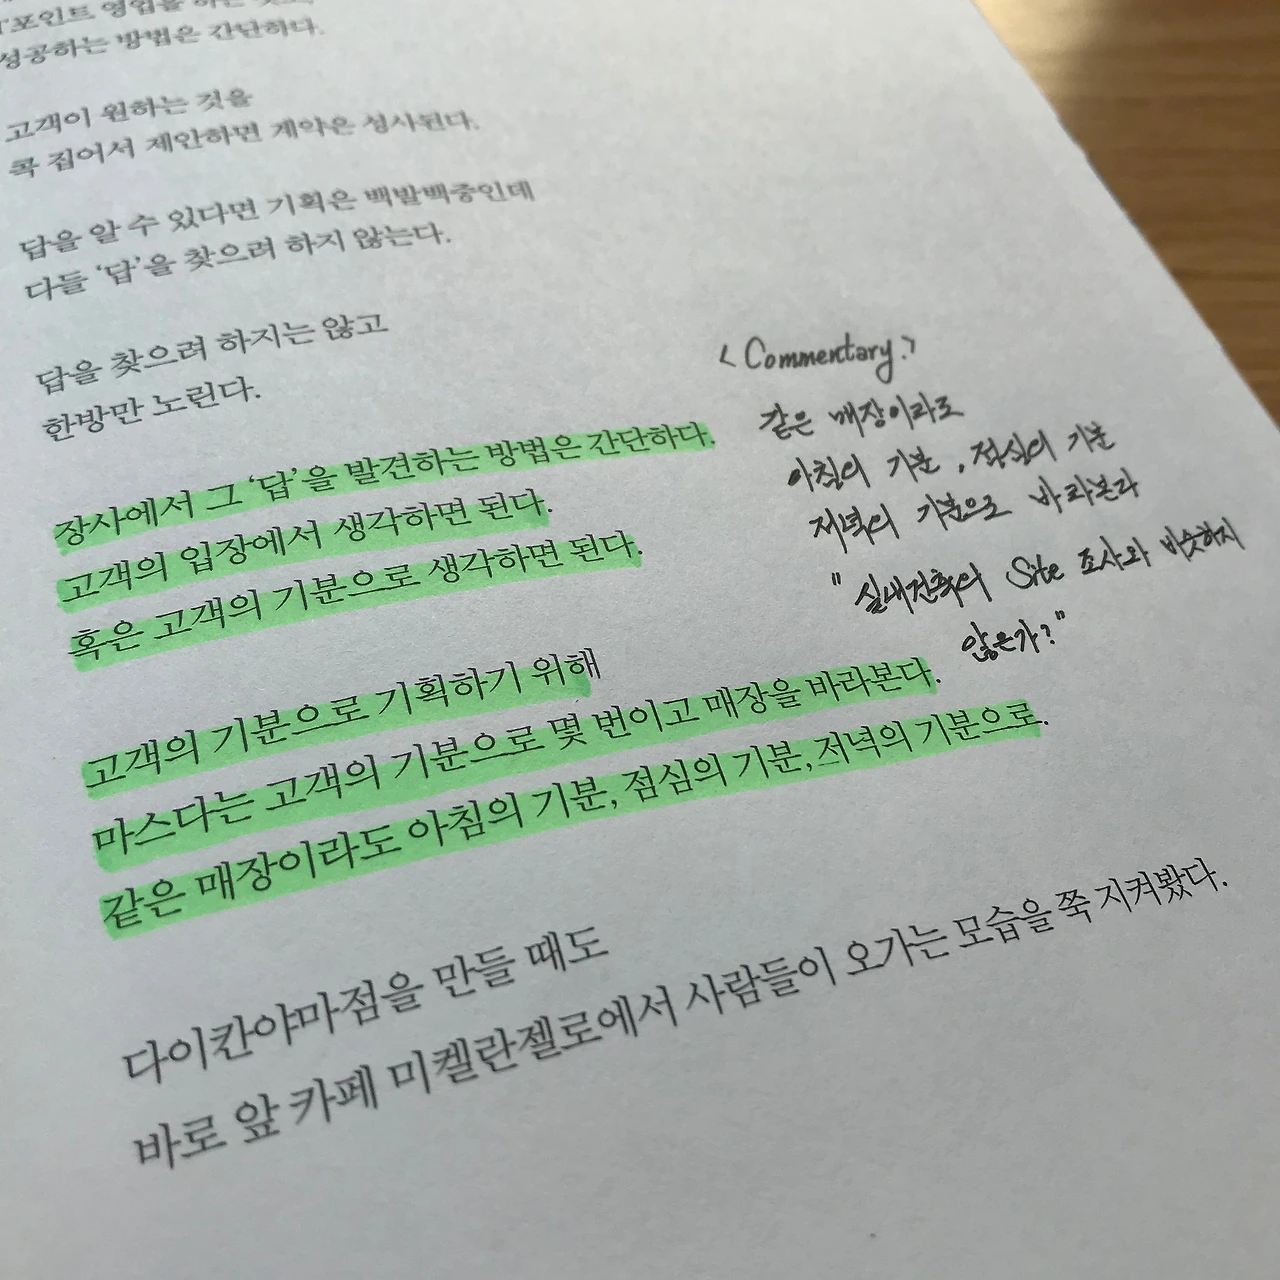 T포인트 영업을 하는
성공하는 방법은 간단하다.
고객이 원하는 것을
콕 집어서 제안하면 계약은 성사된다.
답을 알 수 있다면 기획은 백발백중인데
다들 ‘답’을 찾으려 하지 않는다.
답을 찾으려 하지는 않고
한방만 노린다.
장사에서 그 ‘답’을 발견하는 방법은 간단하다.
고객의 입장에서 생각하면 된다.
혹은 고객의 기분으로 생각하면 된다.
<Commentary.>
같은 매장이라도
아침의 기분, 점심의 기분
저녁의 기분으로 바라본다
"실내건축의 Site 조사와 비슷하지
않은가?"
고객의 기분으로 기획하기 위해
마스다는 고객의 기분으로 몇 번이고 매장을 바라본다.
같은 매장이라도 아침의 기분, 점심의 기분, 저녁의 기분으로.
다이칸야마점을 만들 때도
바로 앞 카페 미켈란젤로에서 사람들이 오가는 모습을 쭉 지켜봤다.